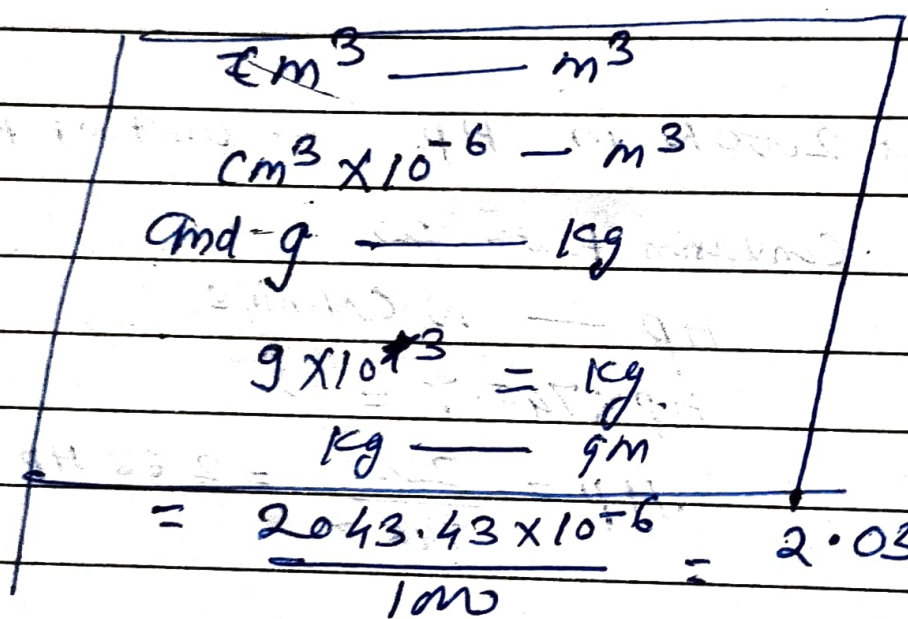 cm³ — m³
cm³ × 10⁻⁶ — m³
and - g — kg
g × 10⁺³ = kg
kg — gm
= 2043.43 × 10⁻⁶ / 1000 = 2.03